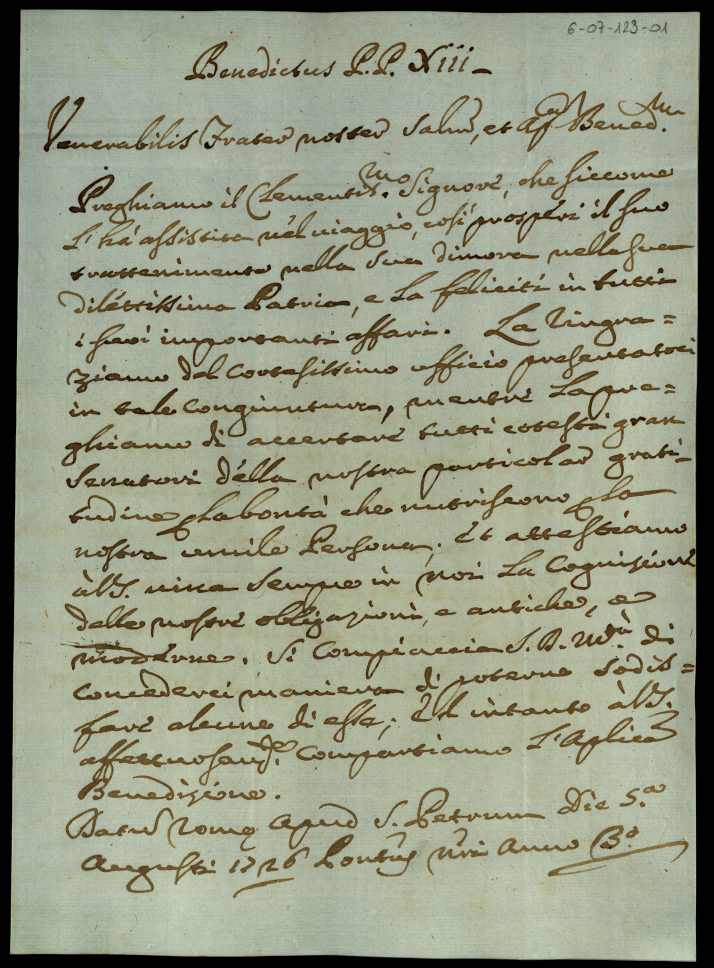 6-07-123-01
Benedictus P.P. Xiii_
Venerabilis Frater noster Salut, et Ap.cam Bened.m
Preghiamo il Clementis.mo Signore, che siccome
l'hà assistita nel viaggio, così prosperi il suo
trattenimento nella sua dimora nella sua
dilettissima Patria, e la feliciti in tutti
i suoi importanti affari. La ringra=
ziamo del cortesissimo officio presentatoci
in tale congiuntura, mentre la pre=
ghiamo di accertare tutti cotesti gran
Senatori della nostra particolar grati-
tudine p la bontà che nutriscono p la
nostra umile Persona. Et attestiamo
à V.S. viva sempre in noi la Cognizione
delle nostre obligazioni, e antiche, e
moderne. Si compiaccia S. D. M.tà di
concederci maniera di poterne sodis=
fare alcune di esse; Et intanto à V.S.
affettuosam.te compartiamo l'Aplica
Benedizione.
Datum Romę Apud S. Petrum die 5.a
Augusti 1726 Pontus nri Anno 3.o